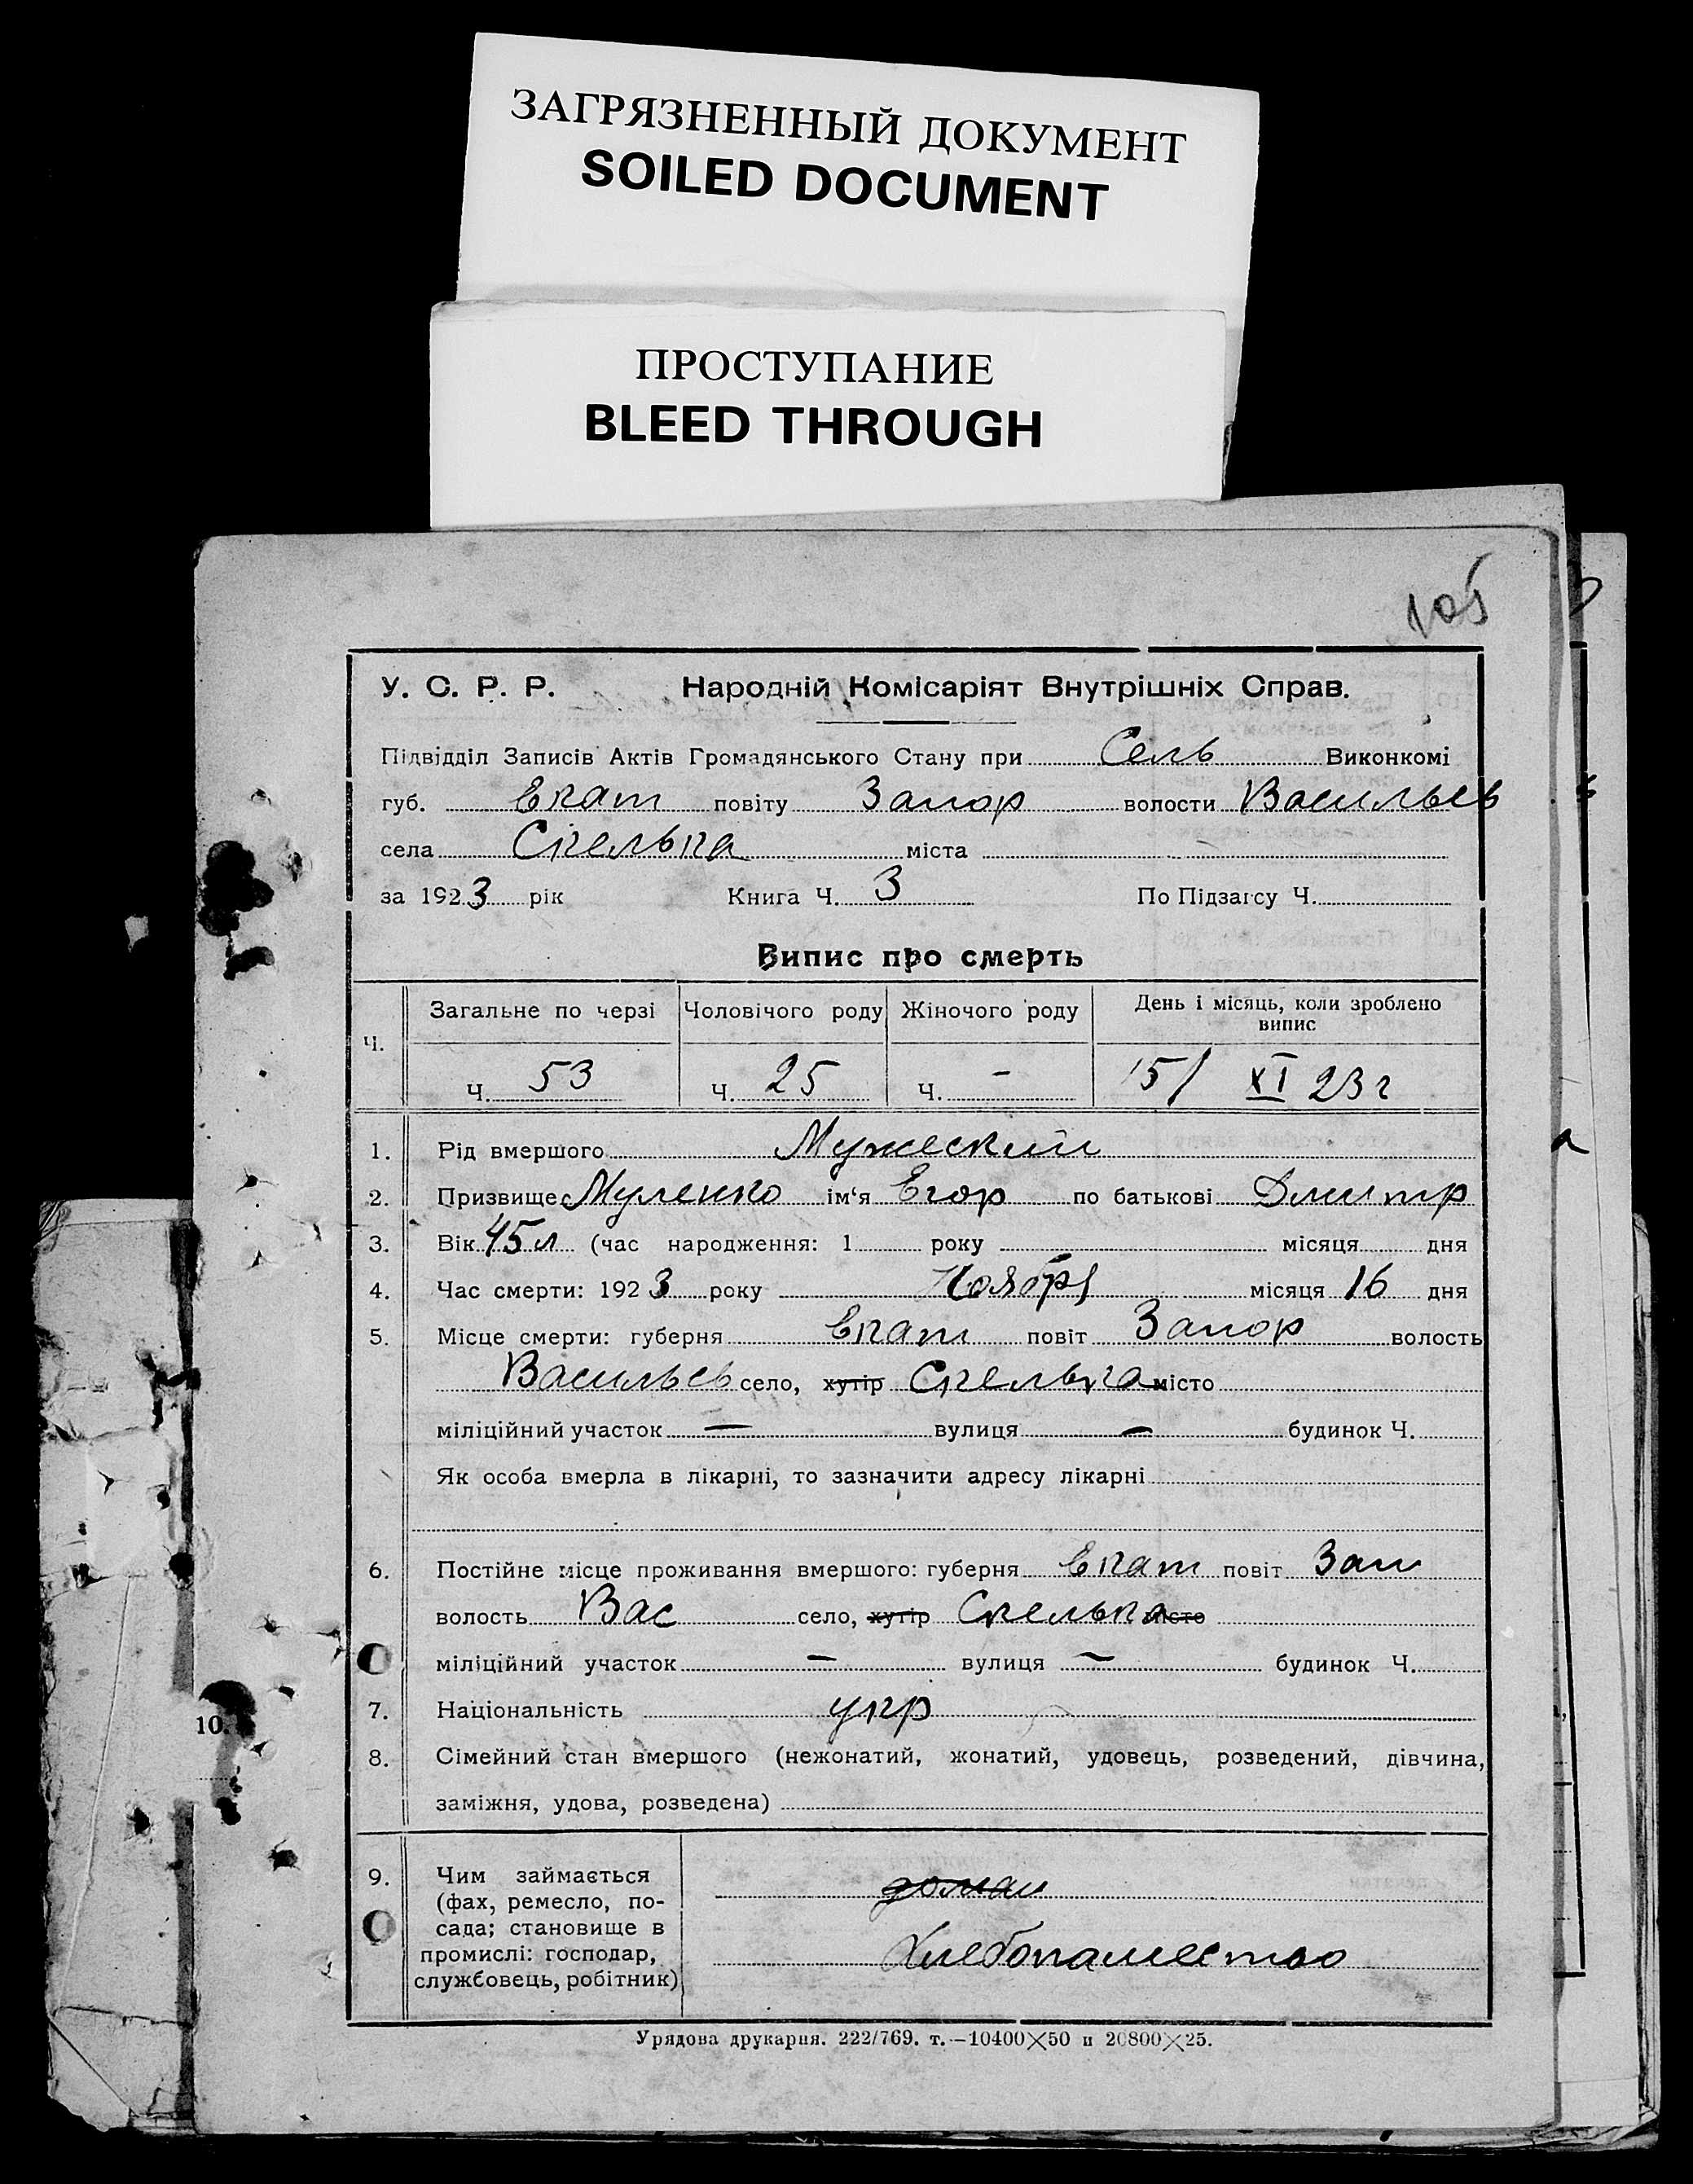 ЗАГРЯЗНЕННЫЙ ДОКУМЕНТ
SOILED DOCUMENT
ПРОСТУПАНИЕ
BLEED THROUGH
105
У. С. Р. Р. Народній Комісаріят Внутрішніх Справ.
Підвідділ Записів Актів Громадянського Стану при Сель Виконкомі
губ. Екат повіту Запор волости Васильев
села Скелька міста
за 1923 рік Книга Ч. 3 По Підзагсу Ч.
Випис про смерть
Ч. Загальне по черзі Чоловічого роду Жіночого роду День і місяць, коли зроблено
випис
Ч. 53 Ч. 25 Ч. - 15/ XI 23 г
1. Рід вмершого Мужеский
2. Призвище Муленко ім'я Егор по батькові Дмитр
3. Вік 45 л (час народження: 1 року місяця дня
4. Час смерти: 1923 року Ноября місяця 16 дня
5. Місце смерти: губерня Екат повіт Запор волость
Васильев село, хутір Скелька місто
міліційний участок — вулиця — будинок Ч.
Як особа вмерла в лікарні, то зазначити адресу лікарні
6. Постійне місце проживання вмершого: губерня Екат повіт Зап
волость Вас село, хутір Скелька місто
міліційний участок — вулиця — будинок Ч.
7. Національність укр
10.
8. Сімейний стан вмершого (нежонатий, жонатий, удовець, розведений, дівчина,
заміжня, удова, розведена)
9. Чим займається
(фах, ремесло, по-
сада; становище в
промислі: господар,
службовець, робітник)
Хлебопашество
Урядова друкарня. 222/769. т.—10400×50 и 20800×25.